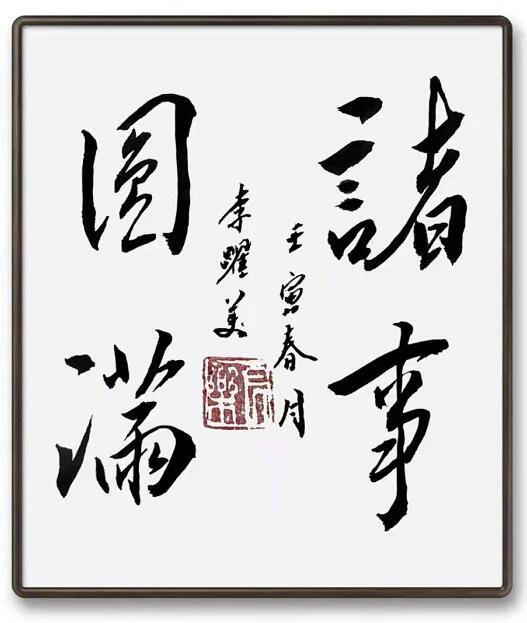 諸事
圓滿
壬寅春月
李耀美